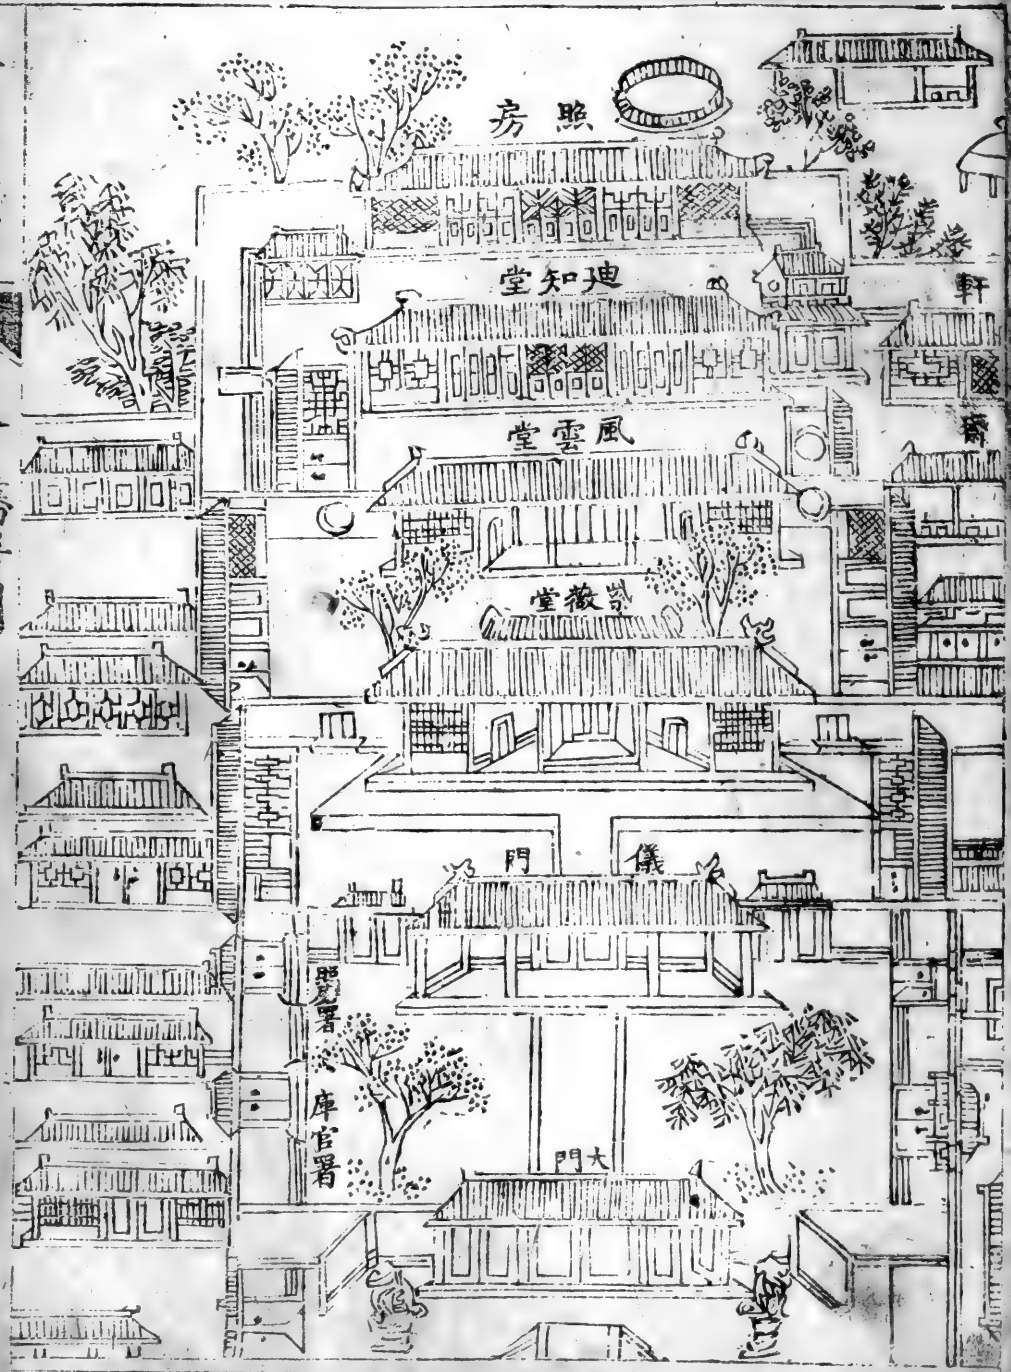 照房
迪知堂
軒
風雲堂
齋
紫薇堂
儀門
署
庫官署
大門